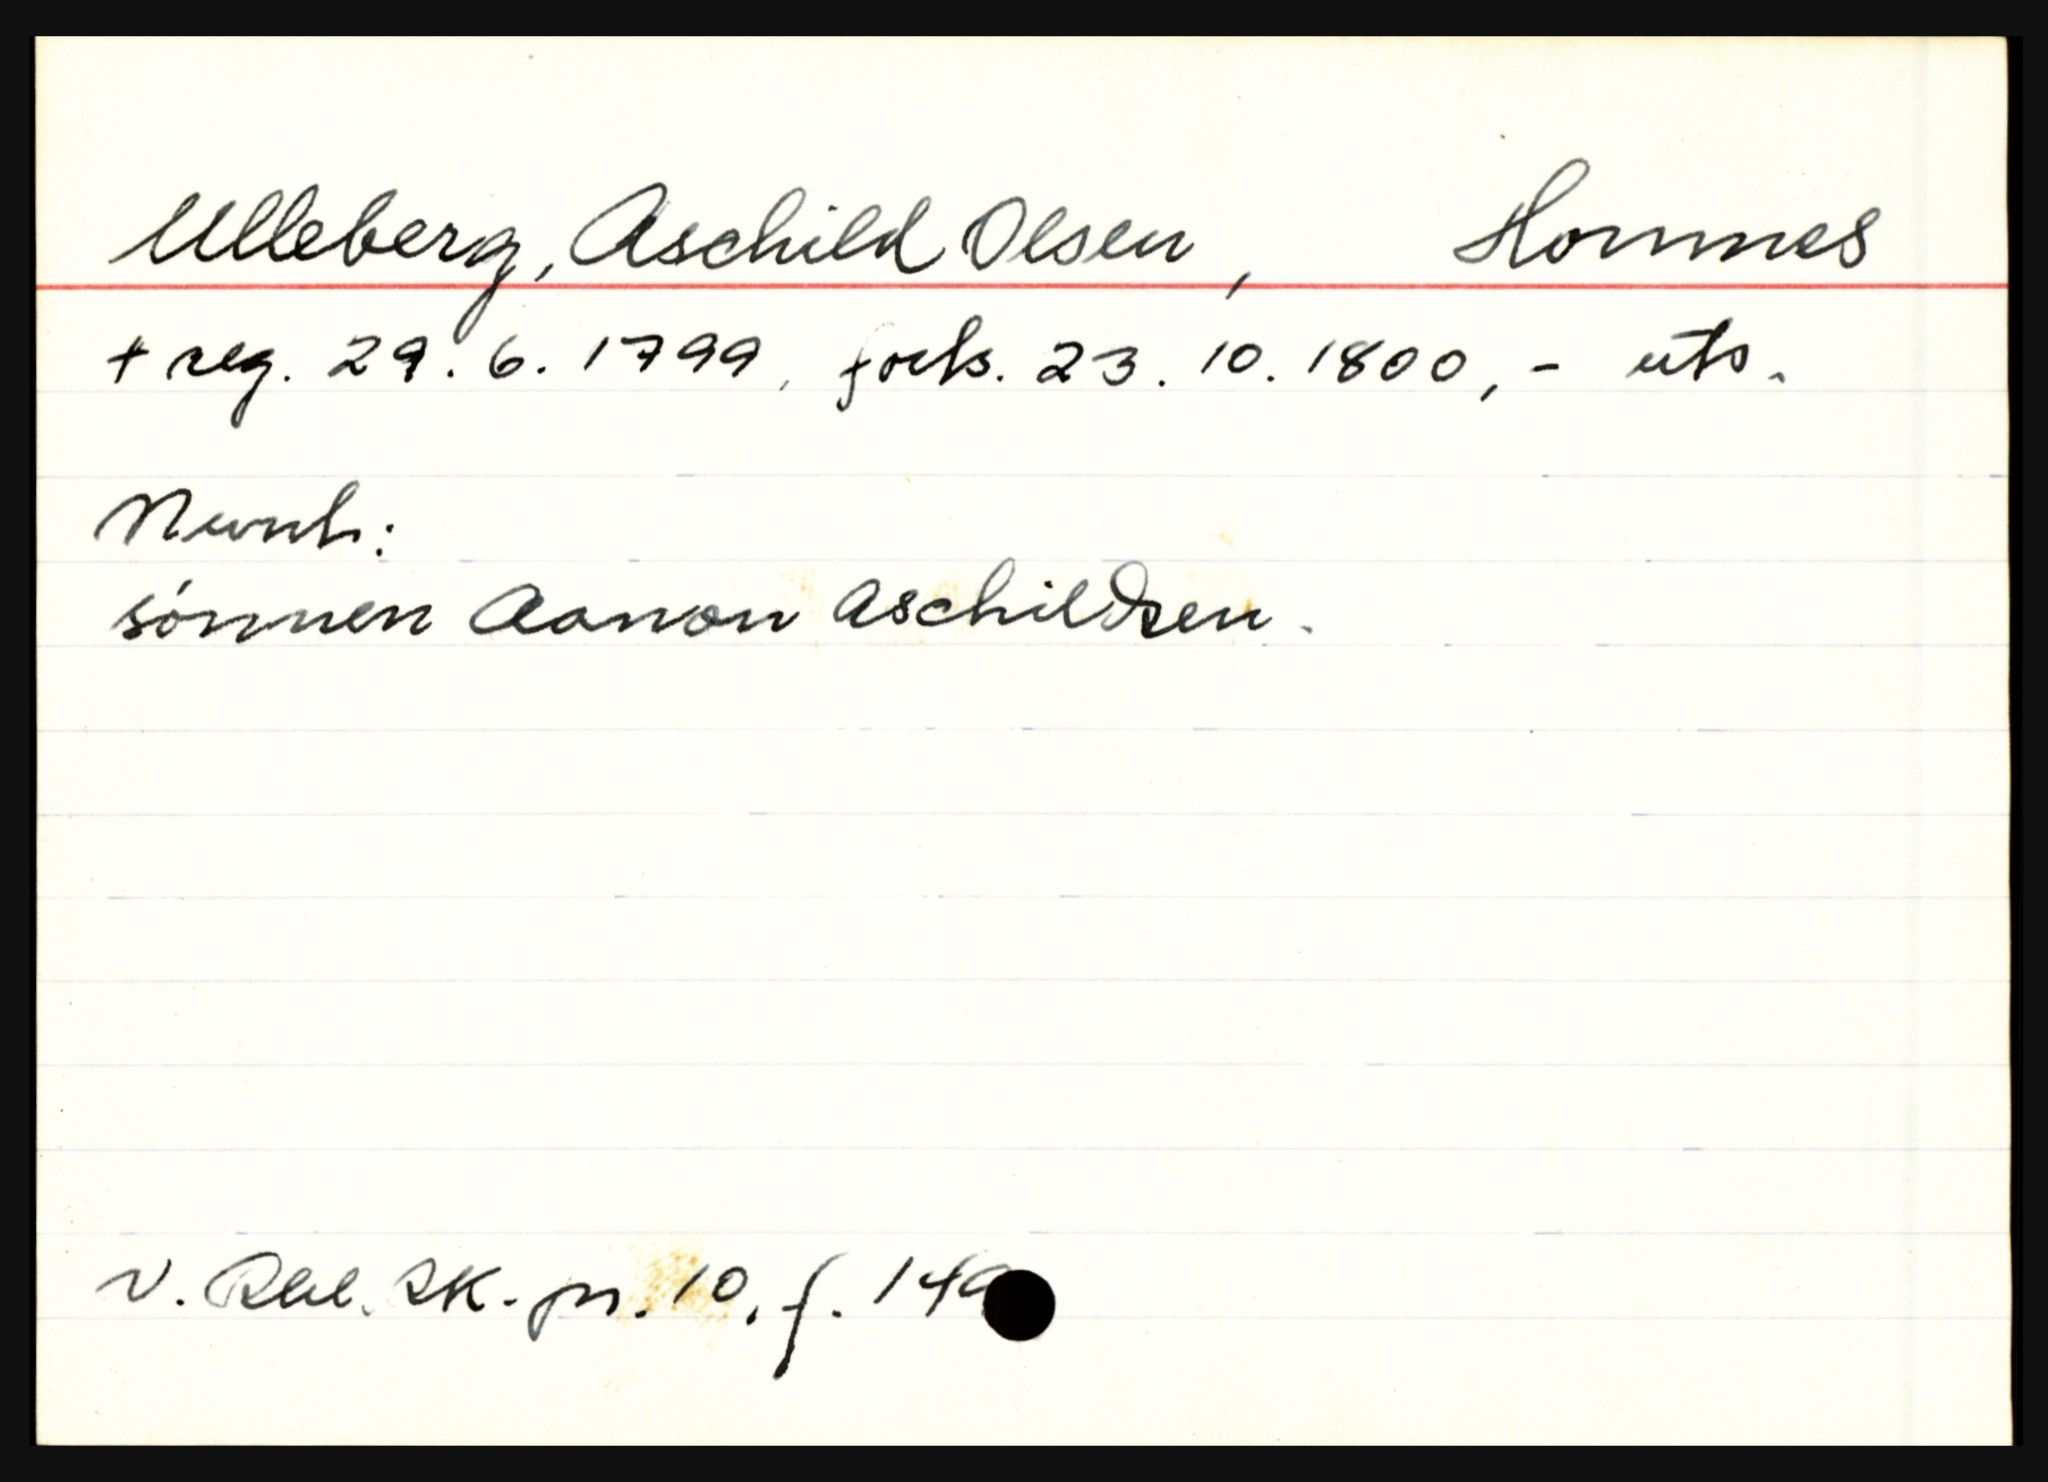 Ulleberg, Aschild Olsen, Hornnes
+ reg. 29.6.1799, forts. 23.10.1800, - uts.
Nevnt:
sønnen Aanon Aschildsen.
V. Rbl. SK. pr. 10, f.